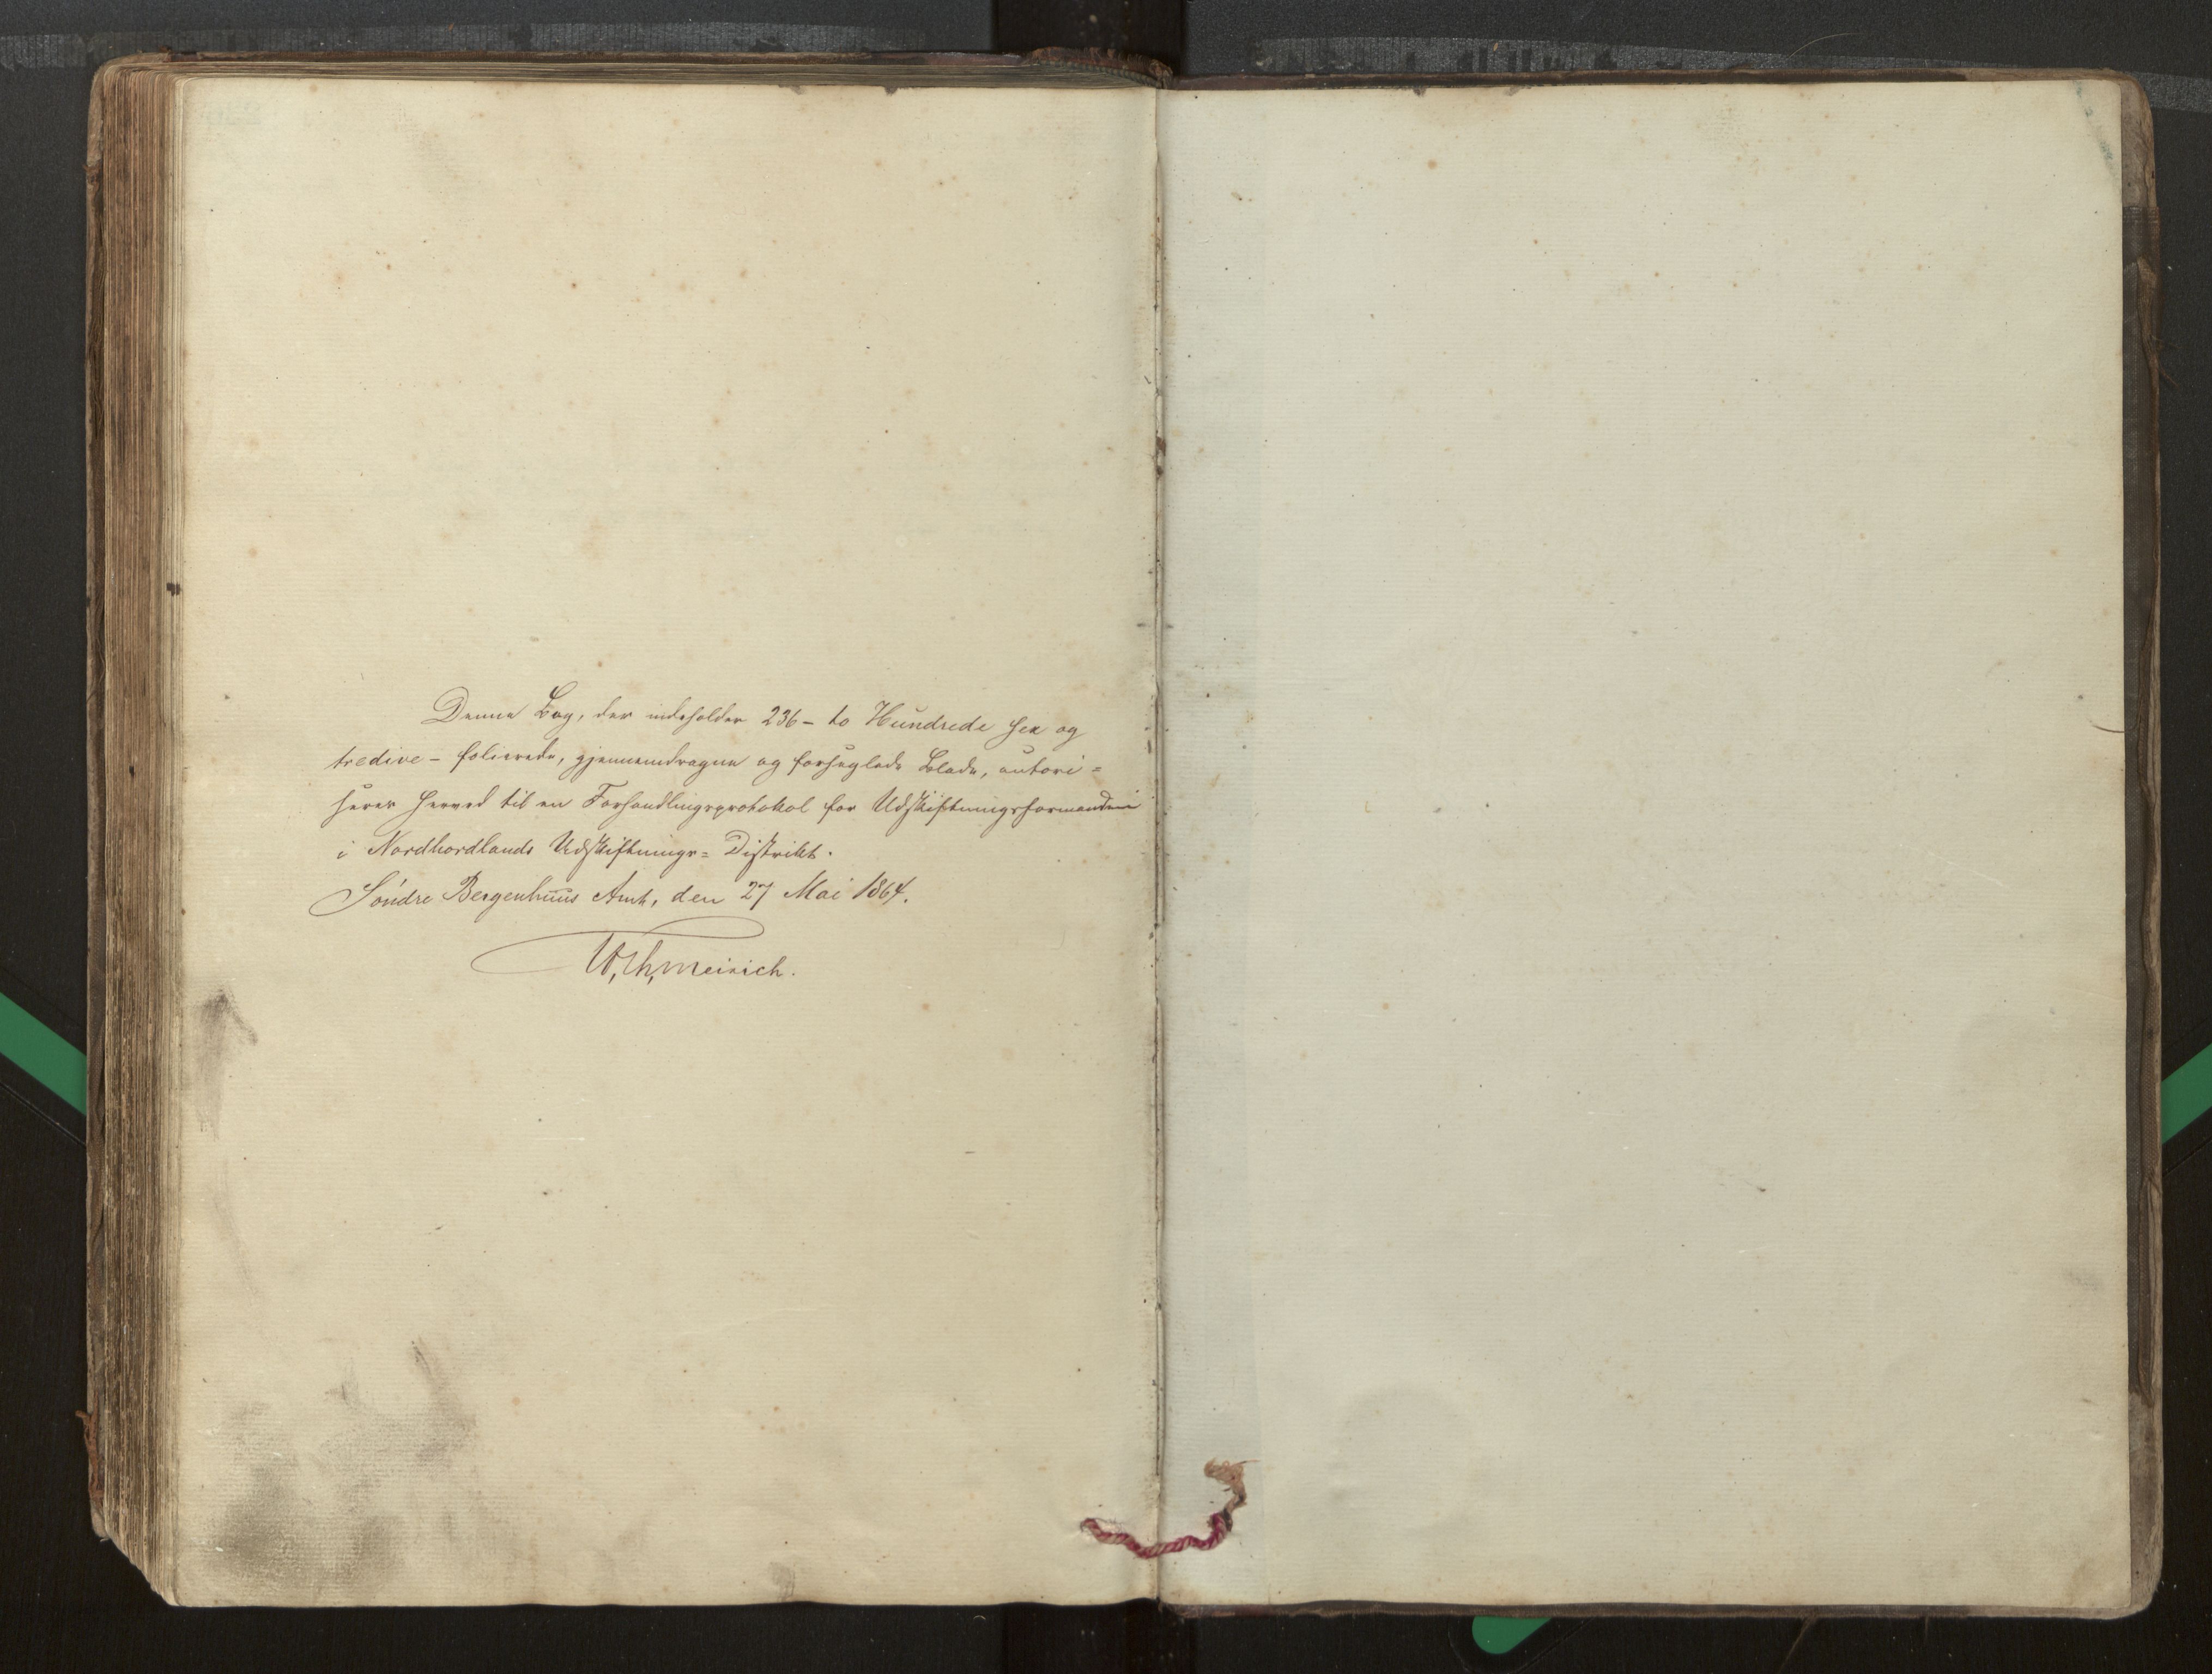 Denne Bog, der indeholder 236 – to Hundrede sex og
tredive – folierede, gjennemdragne og forseglede Blade, autori=
seres herved til en Forhandlingsprotokol for Udskiftningsformanden
i Nordhordlands Udskiftnings= Distrikt.
Söndre Bergenhuus Amt, den 27 Mai 1864.